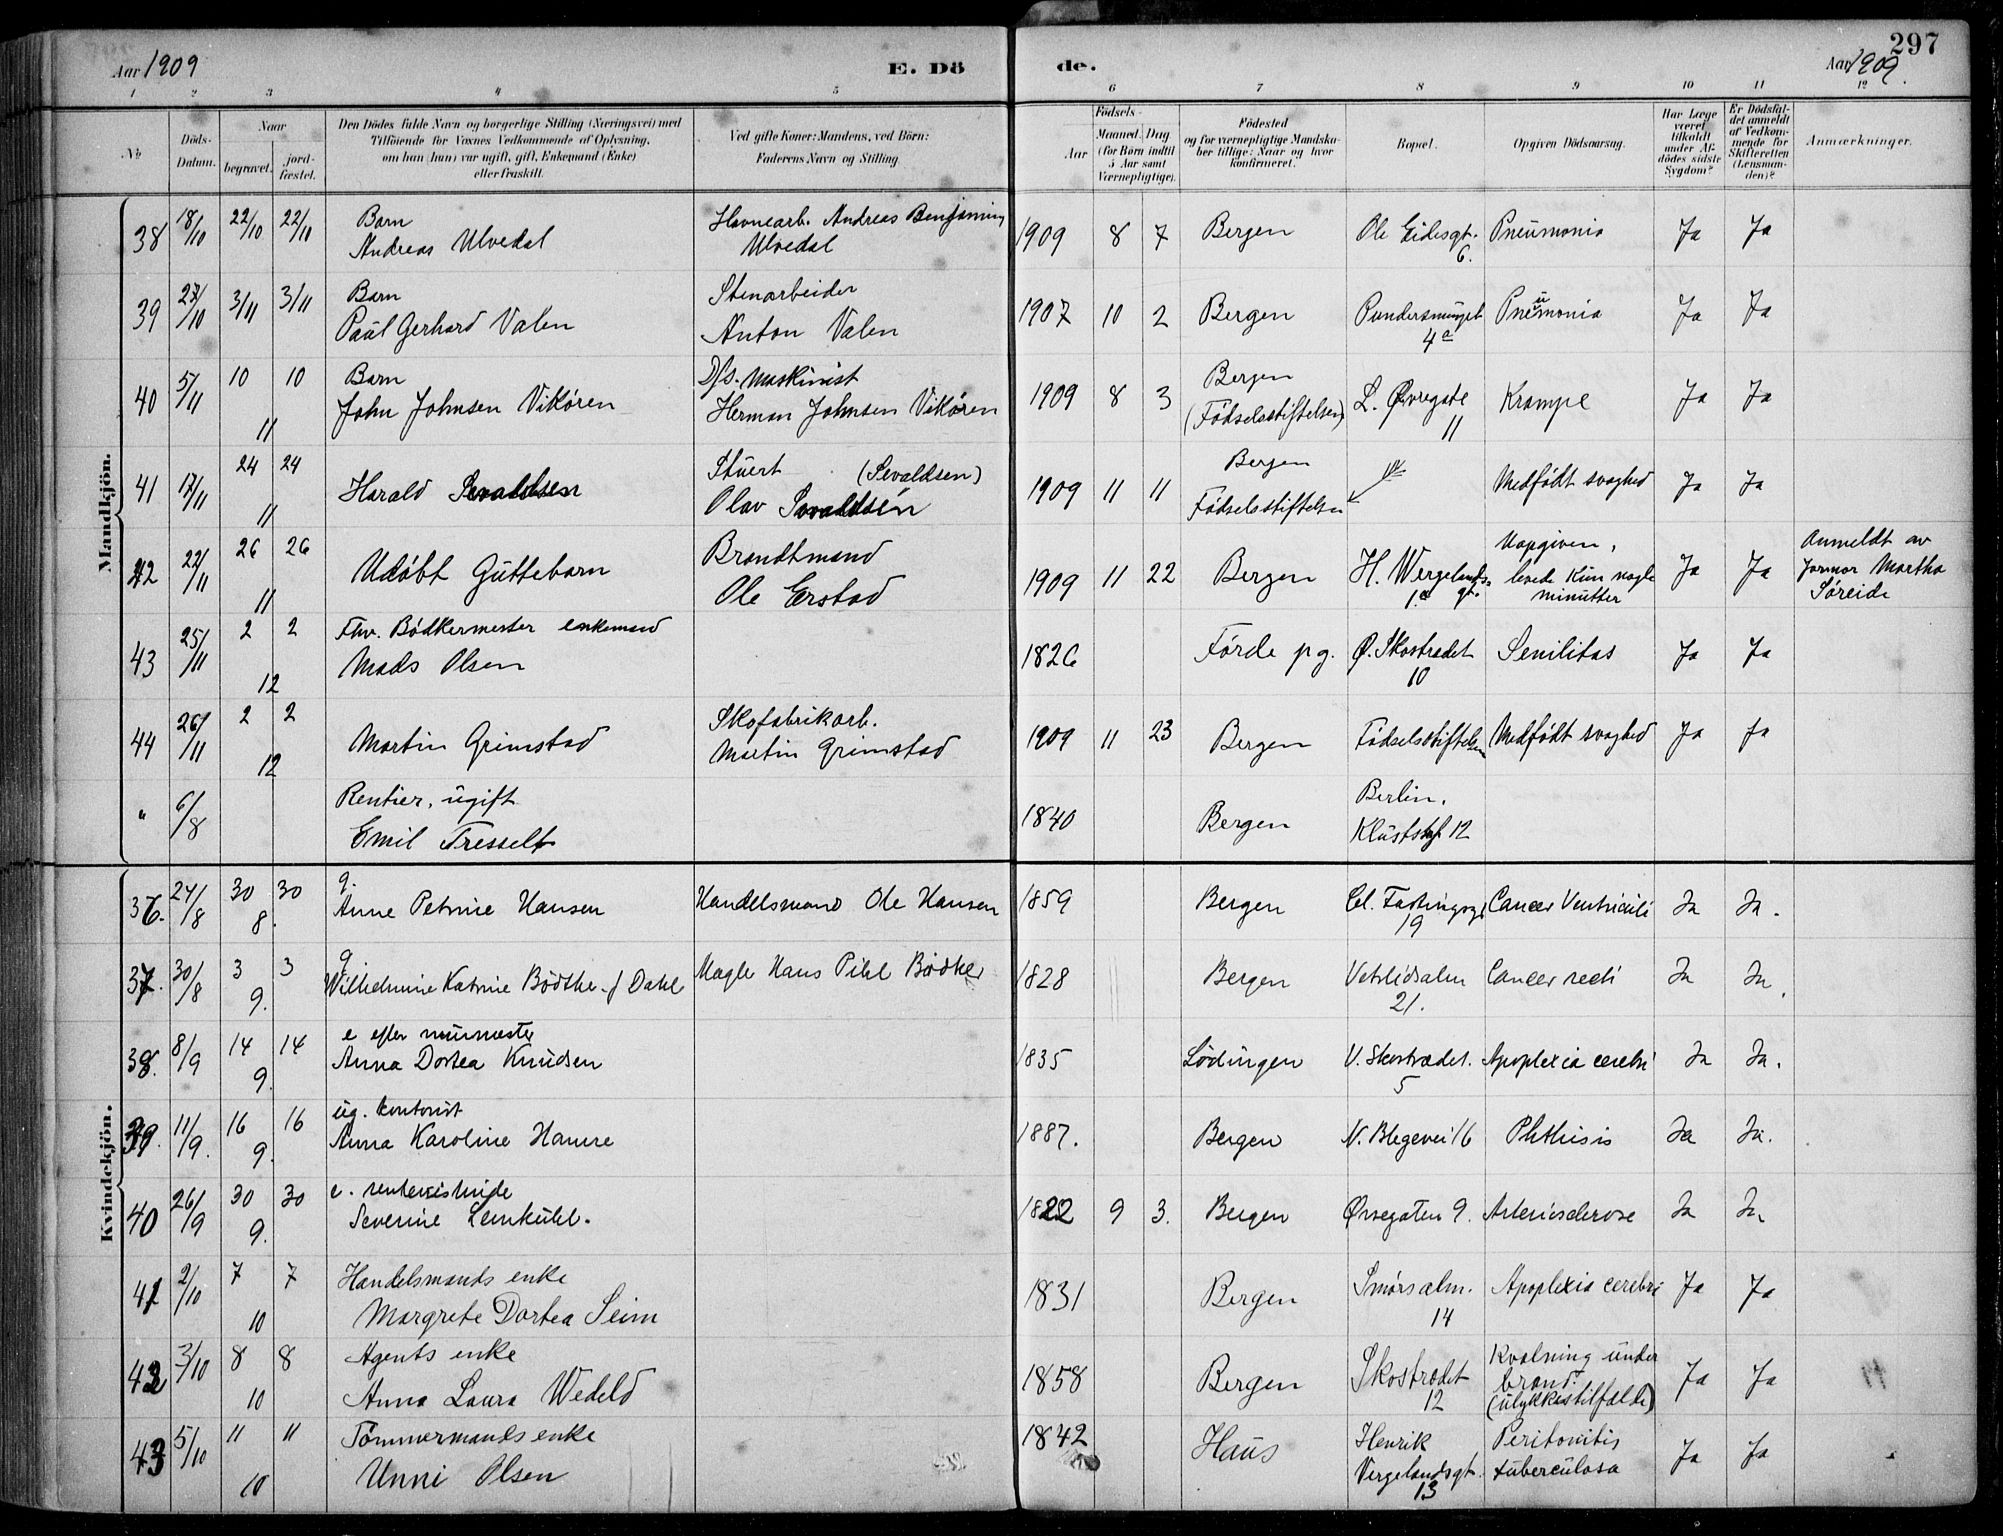 Aar 1909
E. Dö
de.
297
Aar 1909.
1 2 3 4 5 6 7 8 9 10 11 12
No
Döds-Datum.
Naar
begravet.
jord-fæstet.
Den Dödes fulde Navn og borgerlige Stilling (Næringsvei) med
Tilföiende for Voxnes Vedkommende af Oplysning,
om han (hun) var ugift, gift, Enkemand (Enke)
eller fraskilt.
Ved gifte Koner: Mandens, ved Börn:
Faderens Navn og Stilling.
Födsels-
Aar
Maaned. Dag
(for Börn indtil
5 Aar samt
Værnepligtige).
Födested
og for værnepligtige Mandska-
ber tillige: Naar og hvor
konfirmeret.
Bopæl.
Opgiven Dödsaarsag.
Har Læge
været
tilkaldt
under Af-
dödes sidste
Sygdom?
Er Dödsfal-
det anmeldt
af Vedkom-
mende for
Skifteretten
(Lensman-
den)?
Anmærkninger.
Mandkjön.
38 18/10 22/10 22/10 Barn Andreas Ulvedal Havnearb. Andreas Benjamin Ulvedal 1909 8 7 Bergen Ole Eidesgt. 6. Pneumonia Ja Ja
39 27/10 3/11 3/11 Barn Paul Gerhard Valen Stenarbeider Anton Valen 1907 10 2 Bergen 4 Pneumonia Ja Ja
40 5/11 10 10 11 Barn John Johnsen Vikören D/s. Maskinist Herman Johnsen Vikören 1909 8 3 Bergen (Fødselsstiftelsen) L. Øvregate 11 Krampe Ja Ja
41 17/11 24 24 11 Harald Sevaldsen Stuert (Sevaldsen) Olav Sevaldsen 1909 11 11 Bergen Fødselsstiftelsen Medfødt svaghed Ja Ja
42 22/11 26 26 11 Udøbt Guttebarn Brandtmand Ole Erstad 1909 11 22 Bergen H. Wergelands gt. Uopgiven, levede kun nogle minutter Ja Ja Anmeldt av Jormor Martha Søreide
43 25/11 2 2 12 Fhv. Bødkermester enkemand Mads Olsen 1826 Førde pg. Ø. Skostrædet 10 Senilitas Ja Ja
44 26/11 2 2 12 Martin Grimstad Skofabrikarb. Martin Grimstad 1909 11 23 Bergen Fødselsstiftelsen Medfødt svaghed Ja Ja
" 6/8 Rentier, ugift Emil Tresselt 1840 Bergen Berlin. 12
Kvindekjön.
36. 24/8 30 30 8. g. Anne Petrine Hansen Handelsmand Ole Hansen 1859 Bergen Cl. 19 Cancer Ventriculi Ja Ja.
37. 30/8 3 3 9. g. Wilhelmine Katrine Bødtker f Dahl Mægler Hans Pihl Bødtker 1828 Bergen Vetrlidsalm 21. Cancer recti Ja Ja.
38. 8/9 14 14 9. e efter murmester Anna Dortea Knudsen 1835 Lødingen V. Skostrædet. 5 Apoplexia cerebri Ja Ja.
39. 11/9. 16 16 9. ug. kontorist Anna Karoline Hamre 1887. Bergen N. Blegevei 16 Phthisis Ja Ja.
40 26/9 30 30 9. e. Severine Lemkuhl. 1822 9 3. Bergen Øvregaten 9. Arteriosclerose Ja Ja.
41 2/10 7 7 10 Handelsmands enke Margrete Dortea Seim 1831 Bergen Smørsalm. 14 Apoplexia cerebri Ja Ja
42 3/10 8 8 10 Agents enke Anna Laura Wedeld 1858 Bergen Skostrædet 12 Kvælning under brand. (ulykkestilfælde) Ja Ja
43 5/10 11 11 10 Tømmermands enke Unni Olsen 1842 Haus Henrik Vergelandsgt. 13 Peritonitis tuberculosa Ja Ja